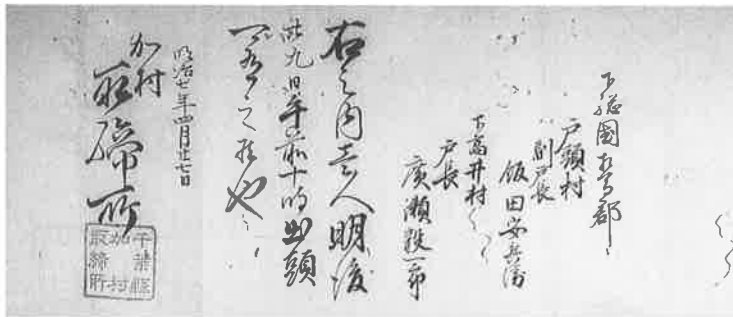 下総國相馬郡
戸頭村
副戸長
飯田安兵衛
下高井村
戸長
廣瀬鉄一郎
右之内壱人明後
廿九日午前十時出頭
可有之候也
明治七年四月廿七日
加村
取締所
千葉縣
加村
取締所